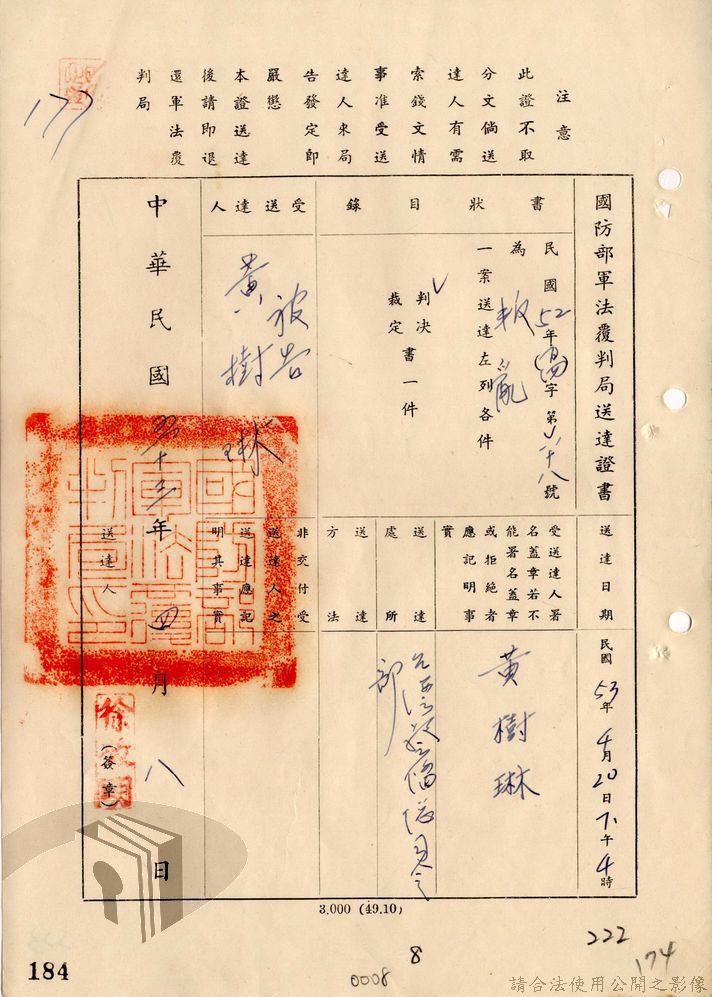 注意
此證不取
分文倘送
達人有需
索錢文情
事准受送
達人來局
告發定即
嚴懲
本證送達
後請即退
還軍法覆
判局
177
國防部軍法覆判局送達證書
送達日期
民國53年4月20日下午4時
書狀目錄
民國52年
字第
號
為叛亂
一案送達左列各件
判決
裁定
書一件
受送達人
被告
黃樹琳
受送達人署
名蓋章若不
能署名蓋章
或拒絕者
應記明事
實
黃樹琳
送達處所
部
送達方法
非交付受
送達人之
送達應記
明其事實
中華民國五十三年四月八日
送達人
(簽章)
國防部軍法覆判局印
3,000 (49.10)
222
174
8
0008
184
請合法使用公開之影像